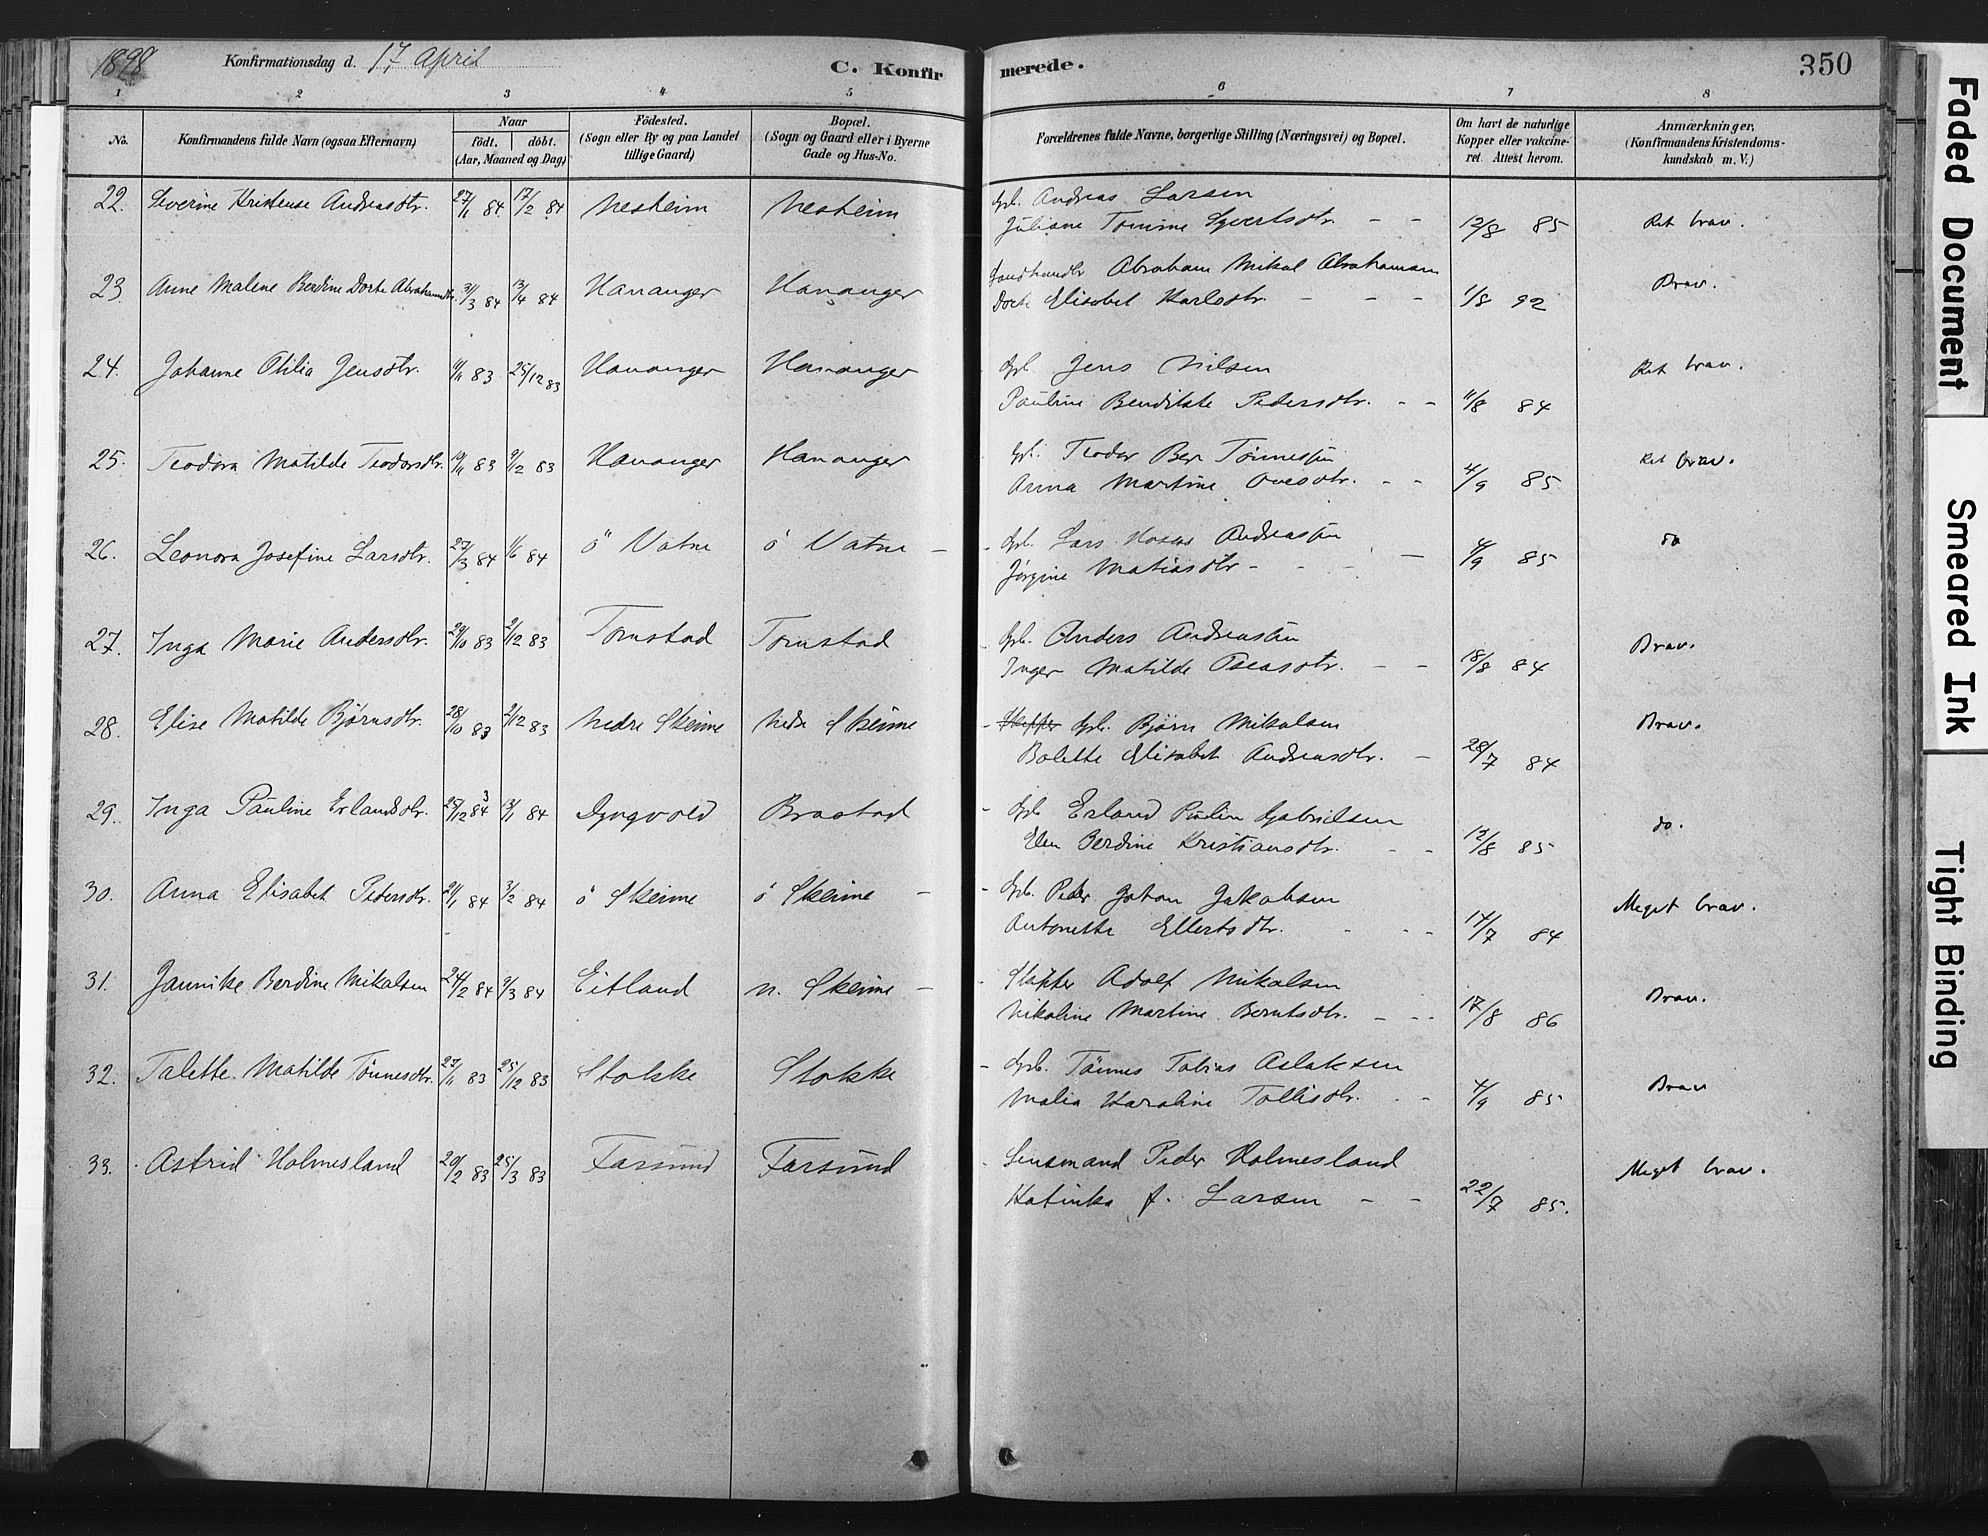 1898 Konfirmationsdag d. 17 April C. Konfirmerede. 350
1 2 3 4 5 6 7 8
No. Konfirmandens fulde Navn (ogsaa Efternavn) Naar födt. döbt. (Aar, Maaned og Dag) Födested. (Sogn eller By og paa Landet tillige Gaard) Bopæl. (Sogn og Gaard eller i Byerne Gade og Hus-No. Forældrenes fulde Navne, borgerlige Stilling (Næringsvei) og Bopæl. Om havt de naturlige Kopper eller vakcineret. Attest herom. Anmærkninger, (Konfirmandens Kristendomskundskab m. V.)
22. Severine Kristense Andreasdtr. 27/1 84 17/2 84 Nesheim Nesheim Gbr. Andreas Larsen
Juliane Tomine Syvertsdtr. - - 12/8 85 Ret brav.
23 Anne Malene Berdine Dorte Abrahamsdtr. 31/3 84 13/4 84 Hananger Hananger Abraham Mikal Abrahamsen
Dorte Elisabet Karlsdtr. - - - 1/8 92 Brav.
24. Johanne Otilia Jensdtr. 11/11 83 25/12 83 Hananger Hananger Gbr. Jens Nilsen
Pauline Bendikte Pedersdtr. - - 11/8 84 Ret brav.
25. Teodora Matilde Teodorsdtr. 19/11 83 9/12 83 Hananger Hananger Gbr. Teodor Ber Tönnessen
Anna Martine Ovesdtr. - - 4/9 85 Ret brav.
26. Leonora Josefine Larsdtr. 27/3 84 1/6 84 ö Vatne ö Vatne - - Gbr. Lars Andreassen
Jørgine Matiasdtr - - - 4/9 85 do
27. Inga Marie Andersdtr. 29/10 83 2/12 83 Tomstad Tomstad - Gbr. Anders Andreassen
Inger Matilde Oseasdtr. - - 18/8 84 Brav.
28. Elise Matilde Bjørnsdtr. 28/10 83 2/12 83 Nedre Skeime Nedr Skeime - Gbr. Björn Mikalsen
Bolette Elisabet Andreasdtr. - 28/7 84 Brav.
29. Inga Pauline Erlandsdtr. 25/12 84 3 13/1 84 Dyngvold Brastad - Gbr Erland Paulin Gabrielsen
Elen Berdine Kristiansdtr. - - 12/8 85 do.
30. Anna Elisabet Pedersdtr. 21/1 84 3/2 84 ö Skeime ö Skeime - - Gbr. Peder Johan Jakobsen
Antonette Ellertsdtr. - - - 14/7 84 Meget brav.
31. Jannike Berdine Mikalsen 24/2 84 9/3 84 Eitland n. Skeime - Skipper Adolf Mikalsen
Nikoline Martine Berntsdtr. - - - 17/8 86 Brav.
32. Talette Matilde Tönnesdtr. 27/11 83 25/12 83 Stokke Stokke - Gbr. Tönnes Tobias Aslaksen
Malia Karoline Tollisdtr. - - 4/9 85 Brav
33. Astrid Holmesland 20/2 83 25/3 83 Farsund Farsund - Lensmand Peder Holmesland
Katinka f. Larsen - - 22/7 85. Meget brav.
Faded Document
Smeared Ink
Tight Binding